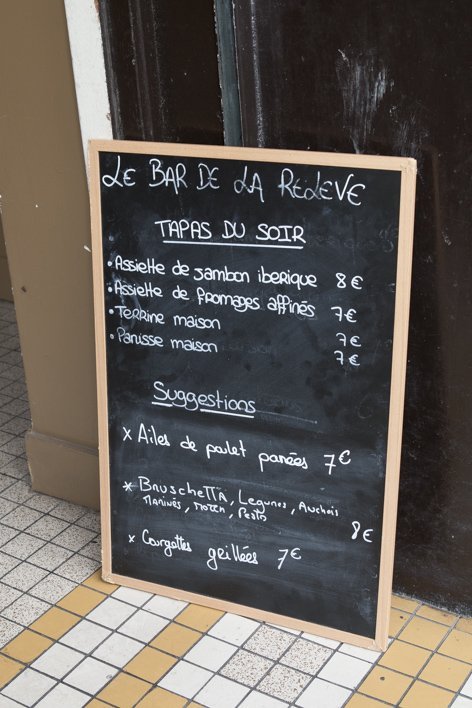 LE BAR DE LA RELEVE
TAPAS DU SOIR
• Assiette de jambon iberique 8€
• Assiette de fromages affinés 7€
• Terrine maison 7€
• Panisse maison 7€
Suggestions
x Ailes de poulet panées 7€
* BRUSCHETTA, Legumes, Anchois
MARINÉS, Pesto 8€
x Courgettes grillées 7€